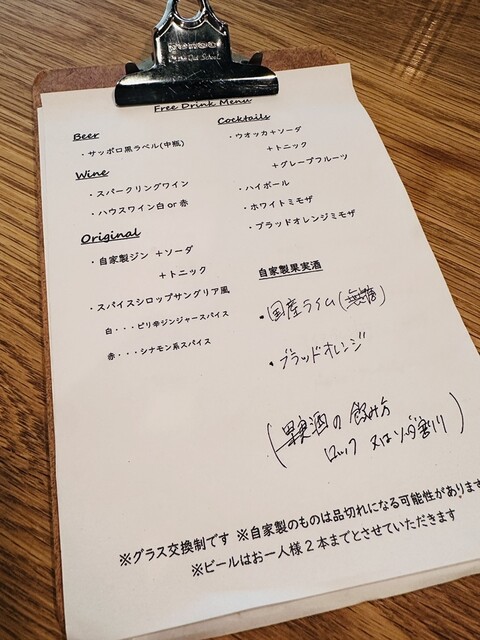 Free Drink Menu
Beer
・サッポロ黒ラベル(中瓶)
Wine
・スパークリングワイン
・ハウスワイン白 or 赤
Original
・自家製ジン +ソーダ
+トニック
・スパイスシロップサングリア風
白・・・ピリ辛ジンジャースパイス
赤・・・シナモン系スパイス
Cocktails
・ウオッカ+ソーダ
+トニック
+グレープフルーツ
・ハイボール
・ホワイトミモザ
・ブラッドオレンジミモザ
自家製果実酒
・国産ライム(無糖)
・ブラッドオレンジ
(果実酒の飲み方
ロック 又はソーダ割り)
※グラス交換制です ※自家製のものは品切れになる可能性があります
※ビールはお一人様2本までとさせていただきます